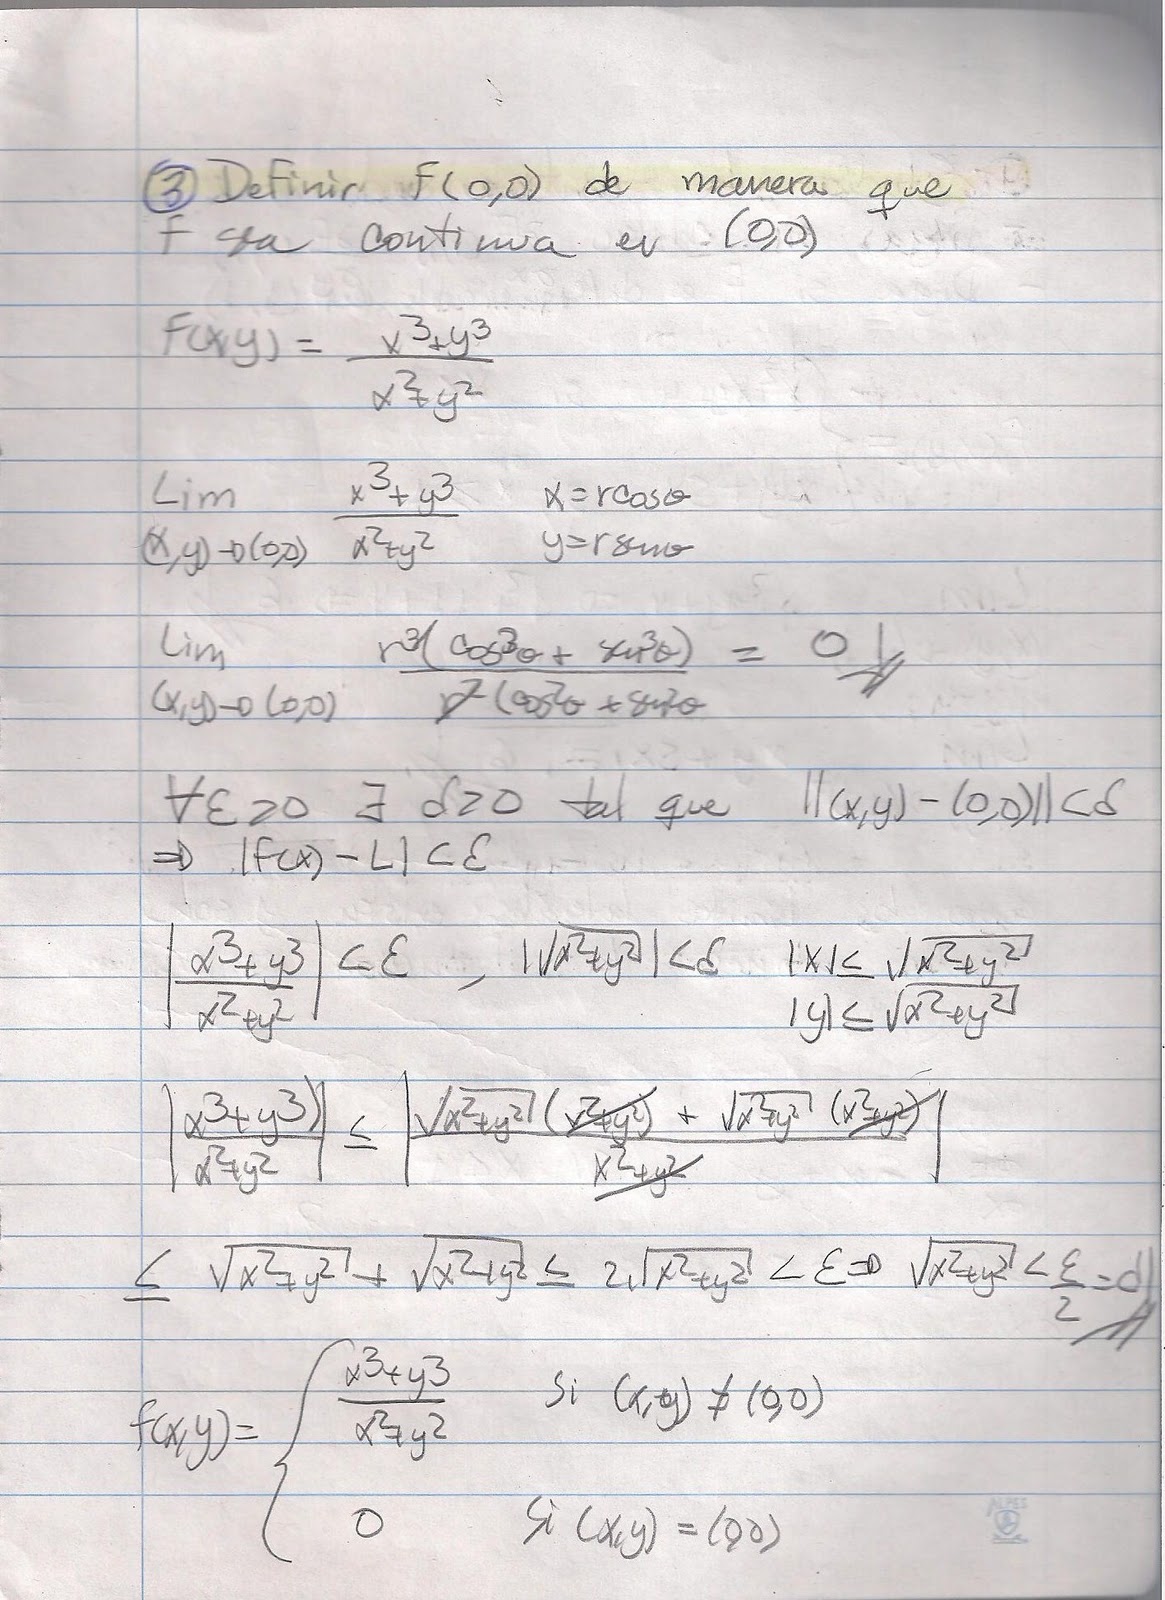 ③ Definir f(0,0) de manera que
f sea continua en (0,0)
f(x,y) = x³+y³ / x²+y²
Lim (x,y)→(0,0) x³+y³ / x²+y² x=rcosθ
y=rsenθ
Lim (x,y)→(0,0) r³(cos³θ + sen³θ) / r²(cos²θ + sen²θ = 0
∀ε>0 ∃ δ>0 tal que ||(x,y) - (0,0)|| < δ
⇒ |f(x) - L| < ε
|x³+y³ / x²+y²| < ε , |√x²+y²| < δ |x| ≤ √x²+y²
|y| ≤ √x²+y²
|x³+y³) / x²+y²| ≤ |√x²+y² (x²+y²) + √x²+y² (x²+y²) / x²+y²|
≤ √x²+y² + √x²+y² ≤ 2√x²+y² < ε ⇒ √x²+y² < ε/2 = δ
f(x,y) = { x³+y³ / x²+y² Si (x,y) ≠ (0,0)
0 Si (x,y) = (0,0)
ALPES